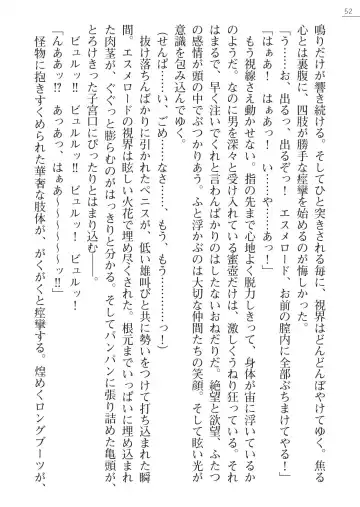 52
鳴りだけが響き続ける。そしてひと突きされる毎に、視界はどんどんぼやけてゆく。焦る
心とは裏腹に、四肢が勝手な痙攣を始めるのが悔しかった。
「う……お、出るっ、出るぞっ！　エスメロード、お前の膣内に全部ぶちまけてやる！」
「はぁあ！　はぁっ！　……い……や……ぁっ！」
もう視線さえ動かせない。指の先まで心地よく脱力しきって、身体が宙に浮いているか
のようだ。なのに男を深々と受け入れている蜜壺だけは、激しくうねり狂っている。それ
はまるで、早く注いでくれと言わんばかりのはしたないおねだりだ。絶望と欲望、ふたつ
の感情が頭の中でぶつかりあう。ふと浮かぶのは大切な仲間たちの笑顔。そして眩い光が
意識を包み込んでゆく。
（せんぱ……い、ごめ……なさ……、もう、もう…………っ！）
抜け落ちんばかりに引かれたペニスが、低い雄叫びと共に勢いをつけて打ち込まれた瞬
間。エスメロードの視界は眩しい火花で埋め尽くされた。根元までいっぱいに埋め込まれ
た肉茎が、ぐぐっと膨らむのがはっきりと分かる。そしてパンパンに張り詰めた亀頭が、
とろけきった子宮口にぴったりとはまり込む――。
ビュルルッ‼　ビュルッ！　ビュルッ！
「んああッ⁉　あっあっ、はぁあ～～～～～～ッ‼」
怪物に抱きすくめられた華奢な肢体が、がくがくと痙攣する。煌めくロングブーツが、